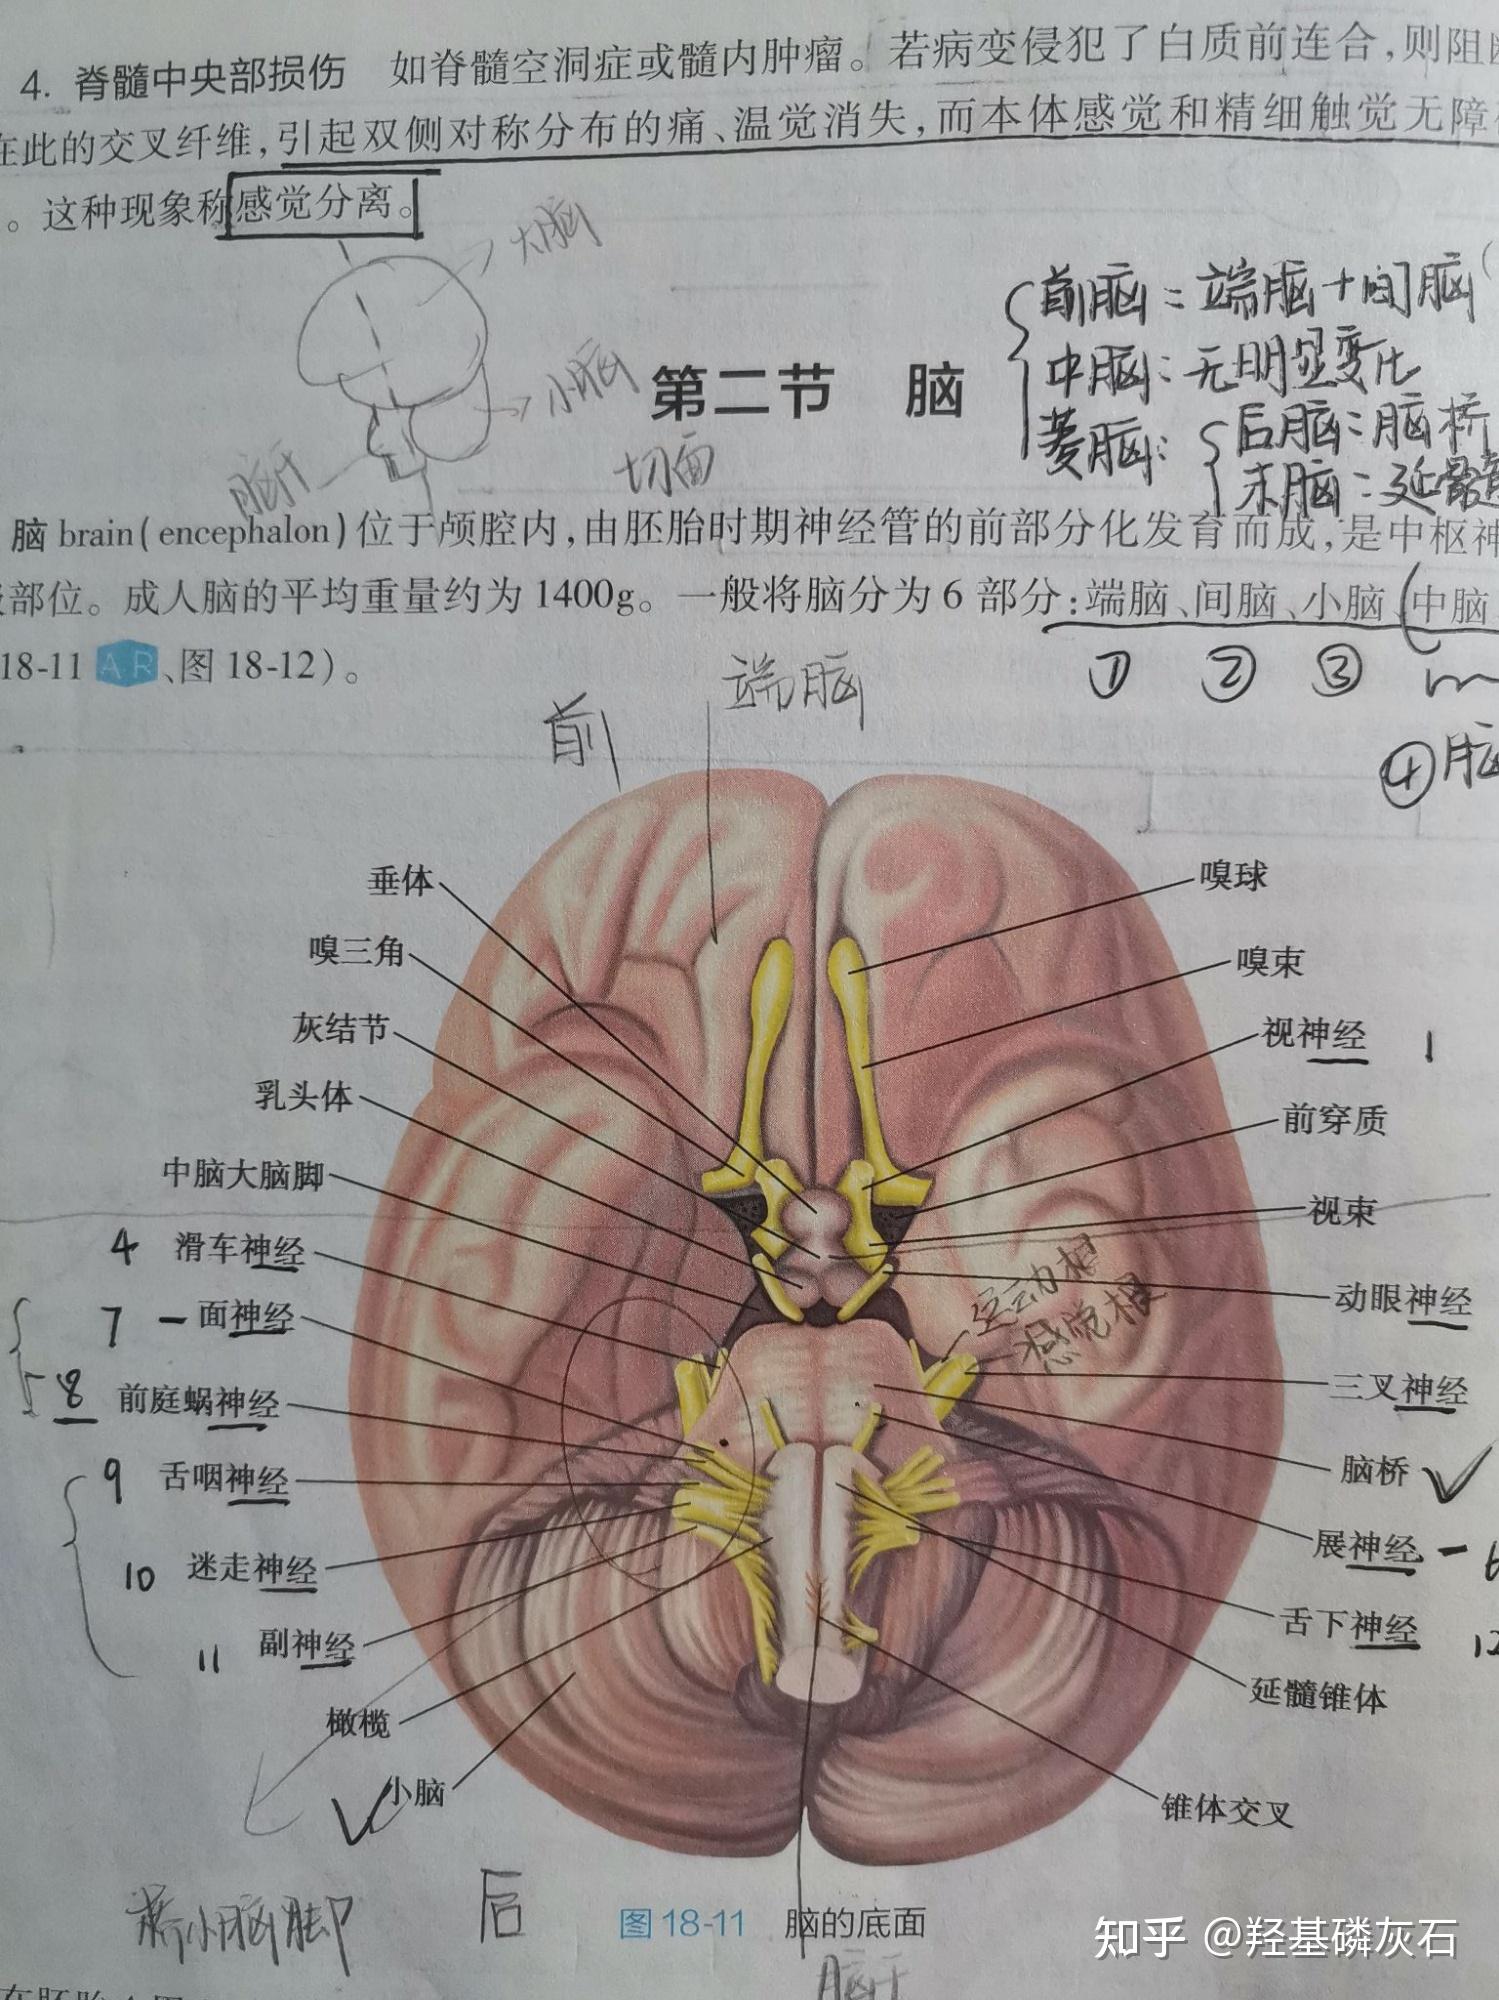 4. 脊髓中央部损伤 如脊髓空洞症或髓内肿瘤。若病变侵犯了白质前连合,则阻
在此的交叉纤维,引起双侧对称分布的痛、温觉消失,而本体感觉和精细触觉无障
。这种现象称感觉分离。
大脑
小脑
脑干
第二节 脑
切面
前脑:端脑+间脑
中脑:无明显变化
菱脑:
后脑:脑桥
末脑:延髓
脑 brain(encephalon)位于颅腔内,由胚胎时期神经管的前部分化发育而成,是中枢神
部位。成人脑的平均重量约为1400g。一般将脑分为6部分:端脑、间脑、小脑、中脑
18-11 AR、图18-12)。
① ② ③
④脑
端脑
前
垂体
嗅三角
灰结节
乳头体
中脑大脑脚
4 滑车神经
7 面神经
8 前庭蜗神经
9 舌咽神经
10 迷走神经
11 副神经
橄榄
小脑
嗅球
嗅束
视神经 1
前穿质
视束
动眼神经
运动根
感觉根
三叉神经
脑桥
展神经
舌下神经 12
延髓锥体
锥体交叉
桥小脑脚
后
图18-11 脑的底面
脑干
知乎 @羟基磷灰石